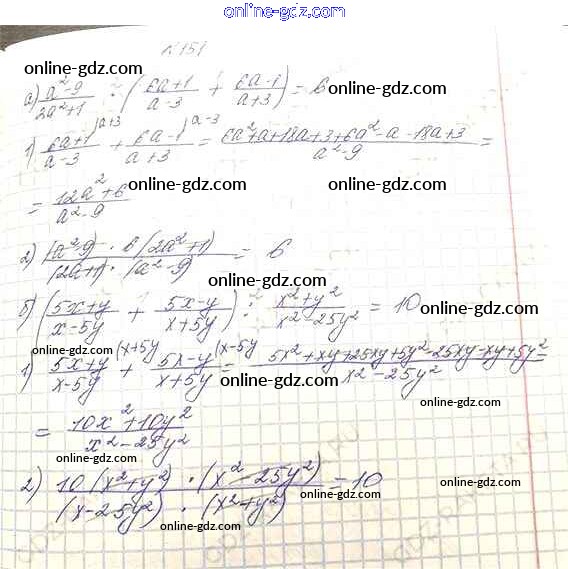 online-gdz.com
N 151
online-gdz.com
а) (a²-9)/(2a²+1) : ((6a+1)/(a-3) + (6a-1)/(a+3)) = 6 online-gdz.com
1) (6a+1)/(a-3) |a+3 + (6a-1)/(a+3) |a-3 = (6a²+a+18a+3+6a²-a-18a+3)/(a²-9) =
= (12a²+6)/(a²-9) online-gdz.com online-gdz.com
2) ((a²-9) · 6(2a²+1))/((2a+1) · (a²-9)) = 6
online-gdz.com
б) ((5x+y)/(x-5y) + (5x-y)/(x+5y)) : (x²+y²)/(x²-25y²) = 10 online-gdz.com
online-gdz.com
1) (5x+y)/(x-5y) (x+5y + (5x-y)/(x+5y) (x-5y = (5x²+xy+25xy+5y²-25xy-xy+5y²)/(x²-25y²) =
online-gdz.com
= (10x²+10y²)/(x²-25y²)
online-gdz.com
2) (10(x²+y²) · (x²-25y²))/((x-25y²) · (x²+y²)) = 10
online-gdz.com online-gdz.com
online-gdz.com
online-gdz.com